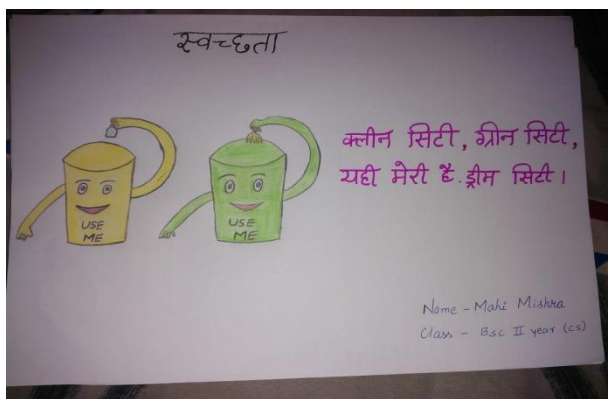 स्वच्छता
USE
ME
USE
ME
क्लीन सिटी, ग्रीन सिटी,
यही मेरी है ड्रीम सिटी।
Name - Mahi Mishra
Class - Bsc II year (cs)